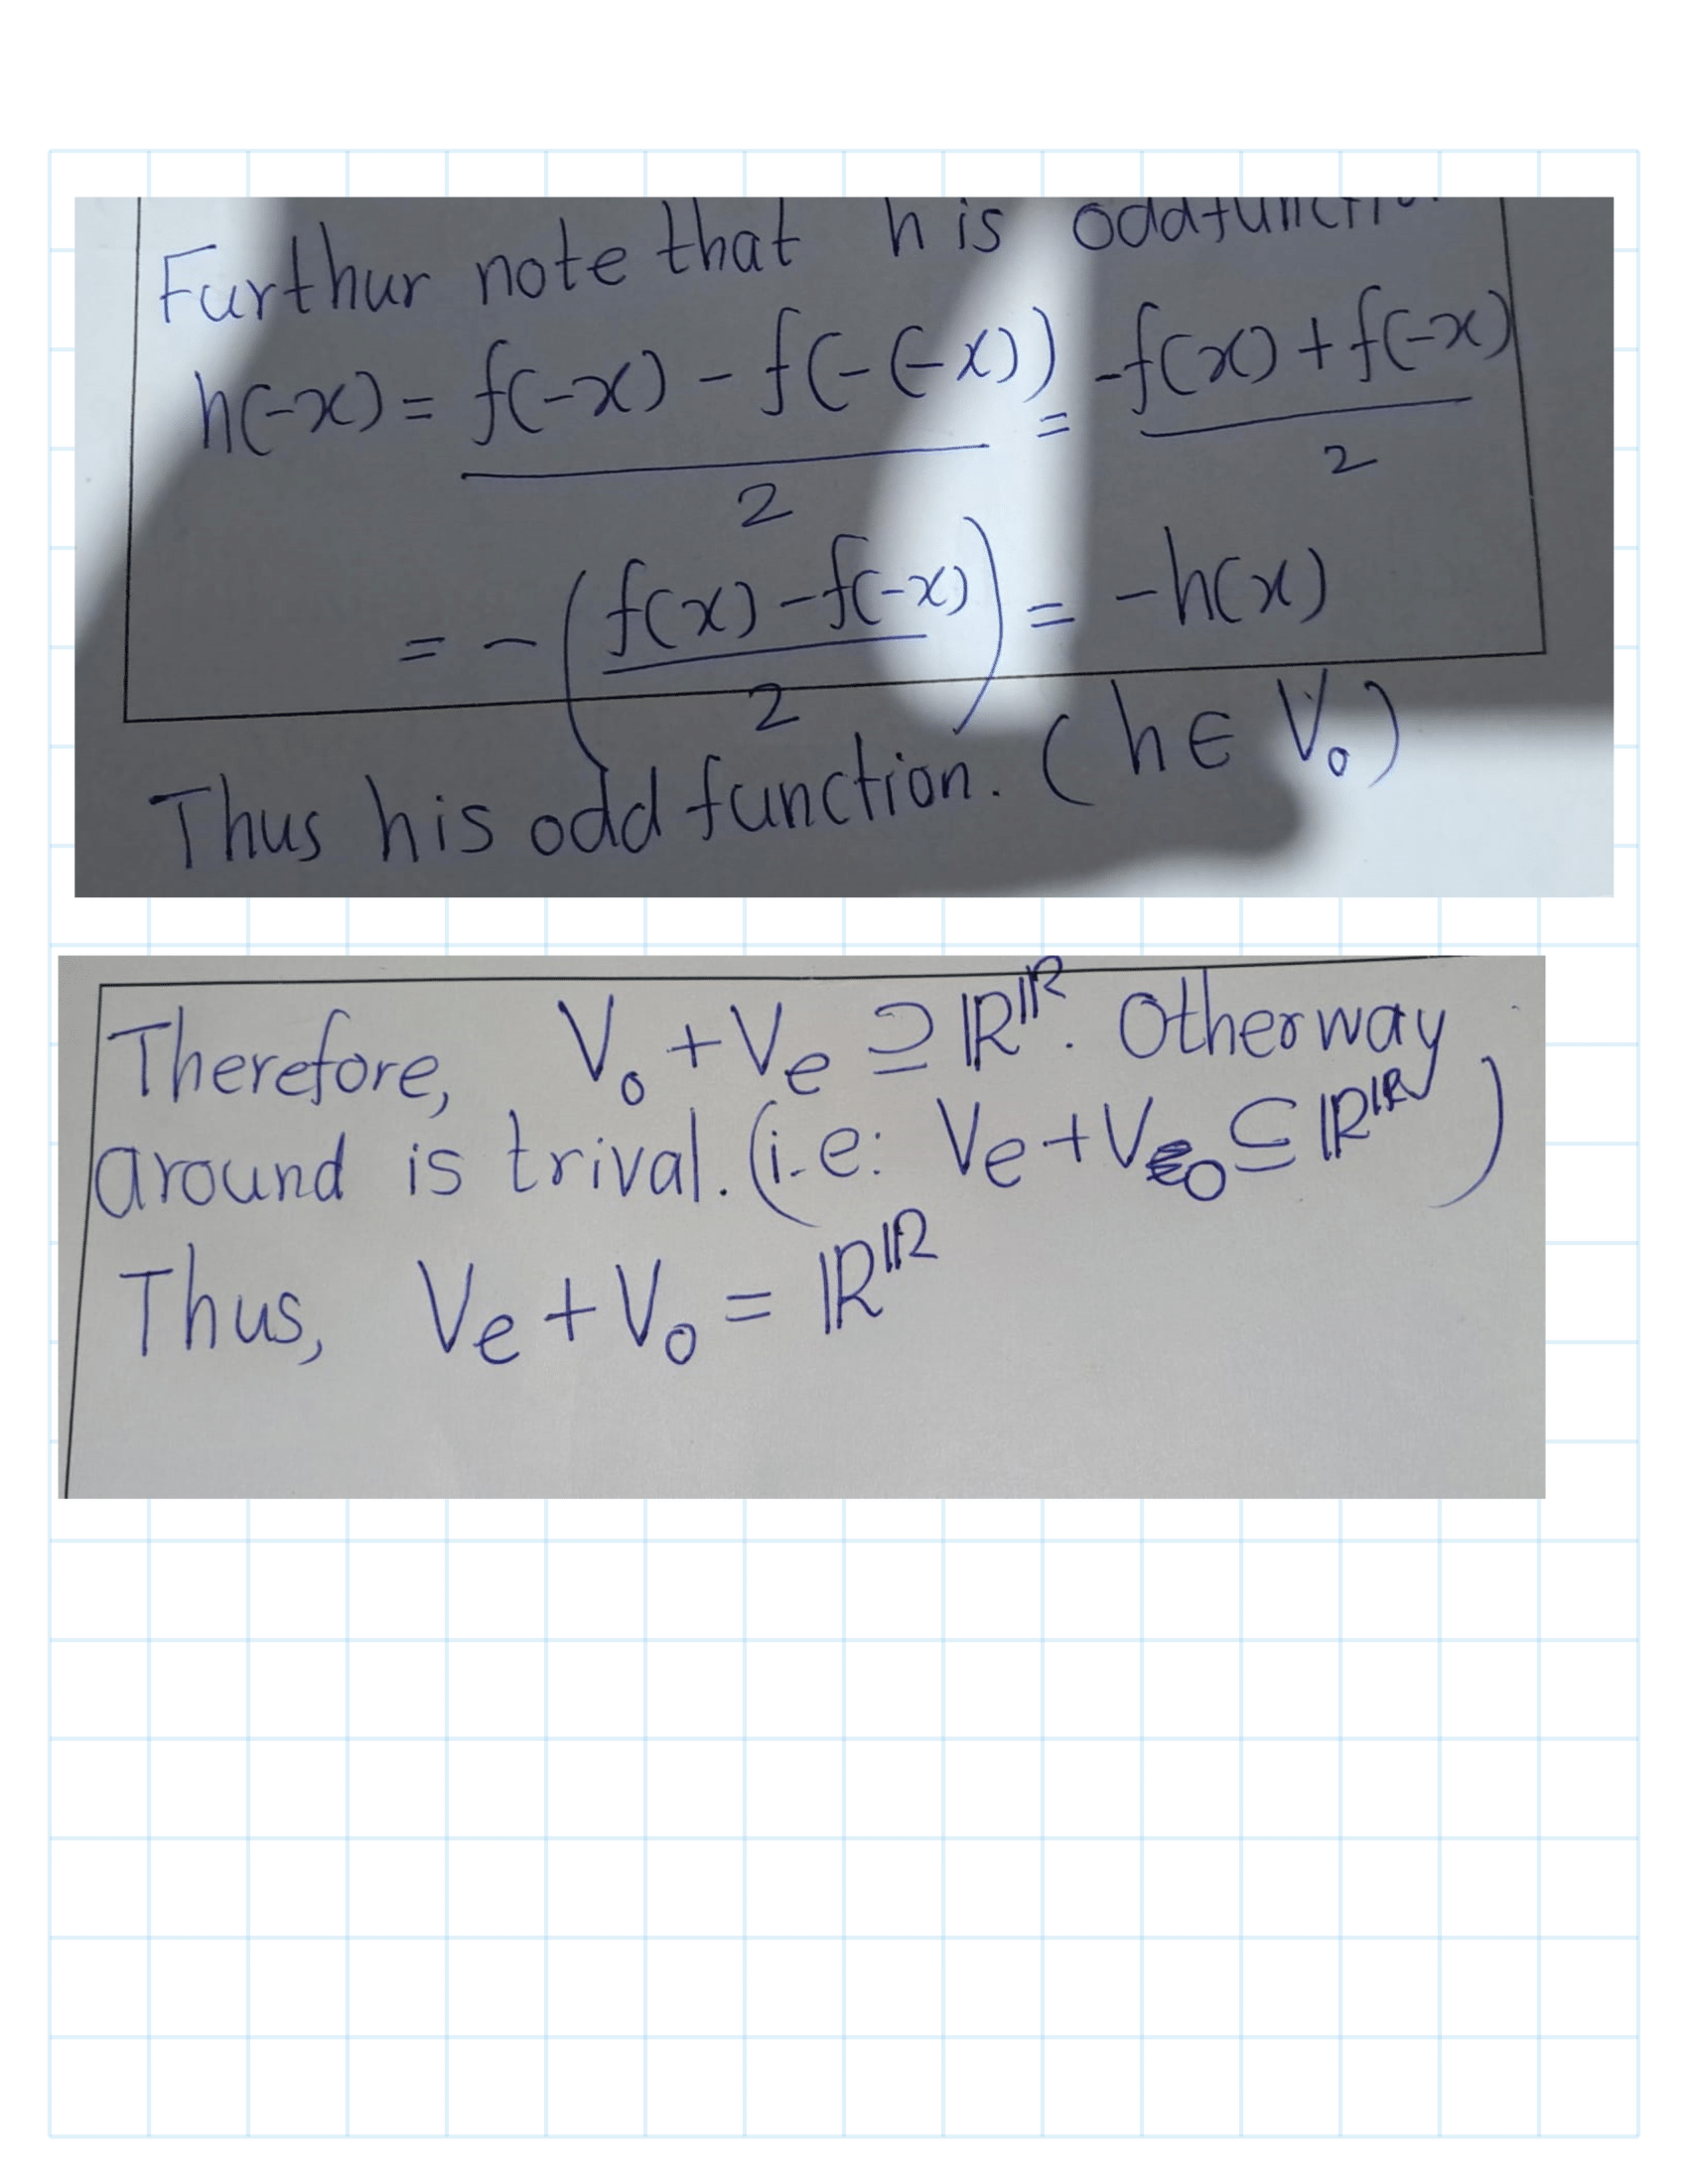 Furthur note that h is odd function
h(-x) = f(-x) - f(-(-x)) / 2 = -f(x) + f(-x) / 2
= - ( f(x) - f(-x) / 2 ) = -h(x)
Thus h is odd function. (h ∈ V₀)
Therefore, V₀ + Vₑ ⊇ ℝ^ℝ. Other way
around is trival. (i.e: Vₑ + V₀ ⊆ ℝ^ℝ)
Thus, Vₑ + V₀ = ℝ^ℝ